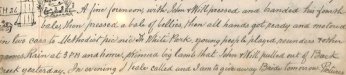 A fine forenoon with John & Will pressed and handed his fourth
bale, then pressed a bale of bellies, then all hands got ready and motored
in two cars to Methodist picnic at White Park, young people played rounders & other
games. Rain at 3 PM and home, skinned big lamb that John & Will pulled out of Back
Creek yesterday. In evening Neate called and I am to give away Bride tomorrow